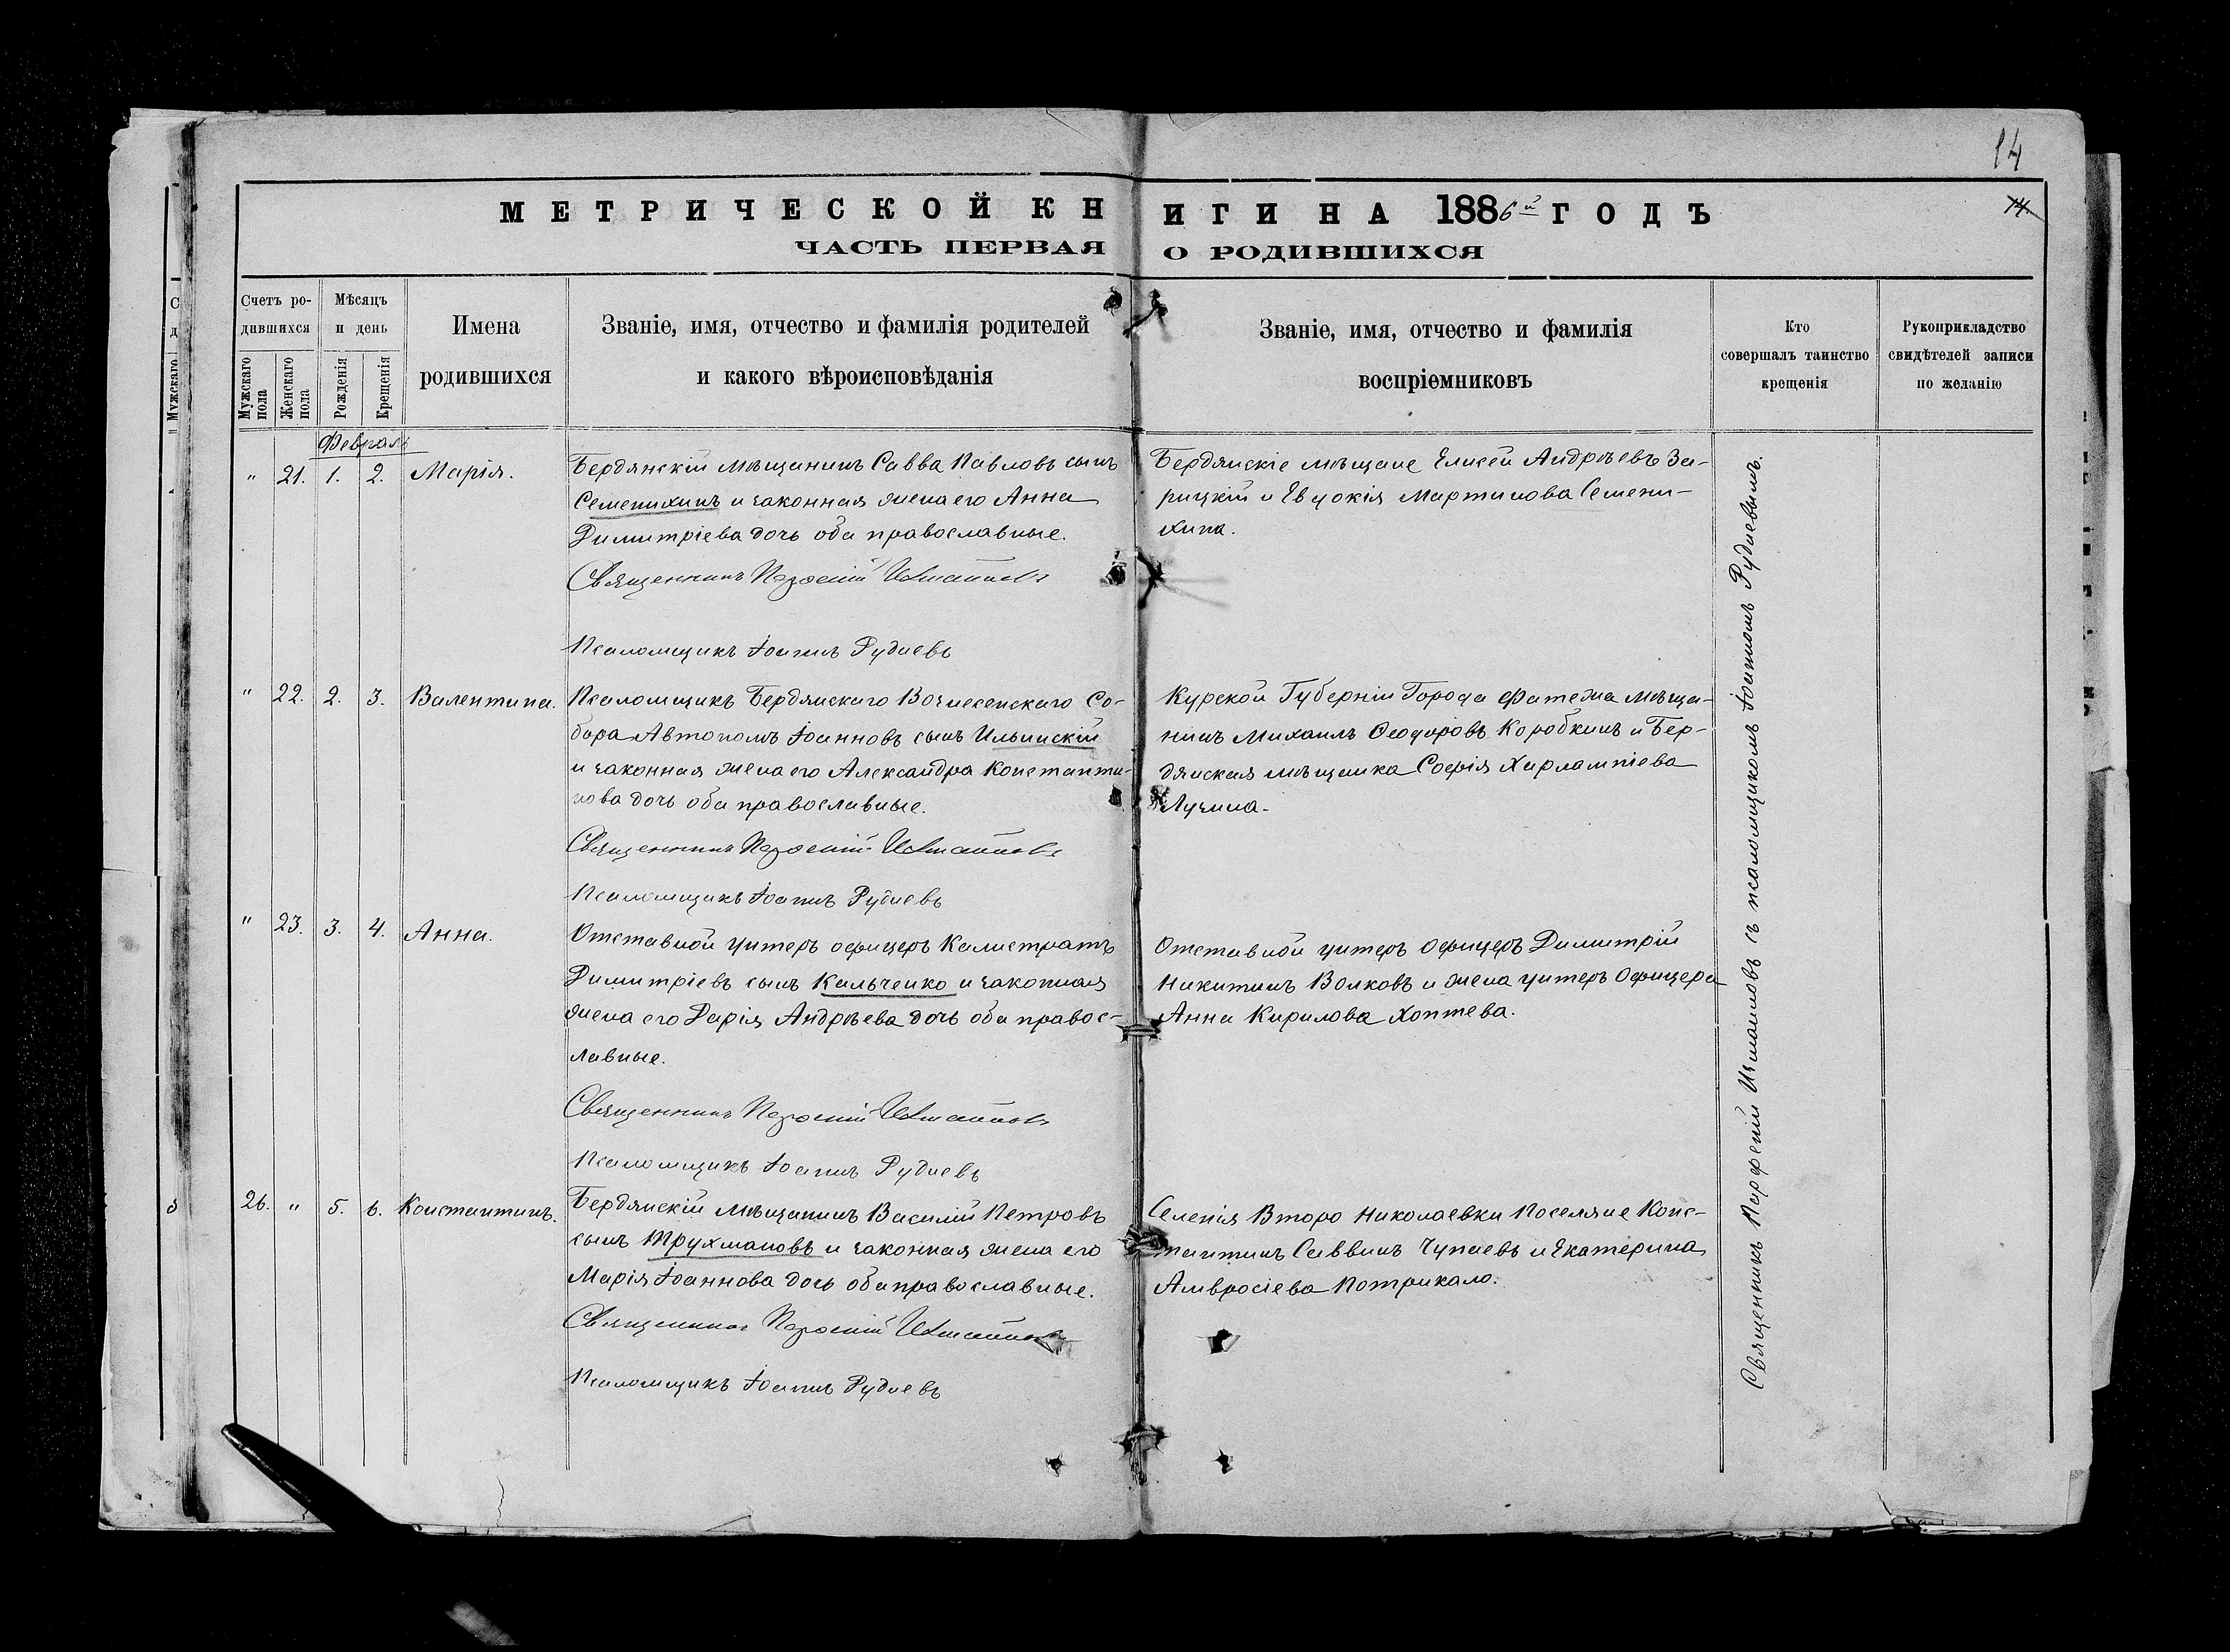 14
МЕТРИЧЕСКОЙ КНИГИ НА 1886й ГОДЪ
14.
ЧАСТЬ ПЕРВАЯ О РОДИВШИХСЯ
Счетъ ро-
дившихся
Мужскаго пола
Женскаго пола
Мѣсяцъ
и день
Рожденія
Крещенія
Имена
родившихся
Званіе, имя, отчество и фамилія родителей
и какого вѣроисповѣданія
Званіе, имя, отчество и фамилія
воспріемниковъ
Кто
совершалъ таинство
крещенія
Рукоприкладство
свидѣтелей записи
по желанію
Мужскаго
Февраль
" 21. 1. 2. Марія.
Бердянскій мѣщанинъ Савва Павловъ сынъ
Семенихинъ и законная жена его Анна
Димитріева дочь оба православные.
Священникъ Парфеній Исмаиловъ
Псаломщикъ Іоаннъ Рудневъ
Бердянскіе мѣщане Елисей Андрѣевъ За-
рицкій и Евдокія Мартинова Семени-
хина.
" 22. 2. 3. Валентина.
Псаломщикъ Бердянскаго Вознесенскаго Со-
бора Автономъ Іоанновъ сынъ Ильинскій
и законная жена его Александра Константи-
нова дочь оба православные.
Священникъ Парфеній Исмаиловъ
Псаломщикъ Іоаннъ Рудневъ
Курской Губерніи Города Фатежа мѣща-
нинъ Михаилъ Ѳеодоровъ Коробкинъ и Бер-
дянская мѣщанка Софія Харлампіева
Лучина.
" 23. 3. 4. Анна.
Отставной унтеръ офицеръ Калистратъ
Димитріевъ сынъ Кальченко и законная
жена его Дарія Андрѣева дочь оба правос-
лавные.
Священникъ Парфеній Исмаиловъ
Псаломщикъ Іоаннъ Рудневъ
Отставной унтеръ Офицеръ Димитрій
Никитинъ Волковъ и жена унтеръ Офицера
Анна Кирилова Хоптева.
26. " 5. 6. Константинъ.
Бердянскій мѣщанинъ Василій Петровъ
сынъ Трухмановъ и законная жена его
Марія Іоаннова дочь оба православные.
Священникъ Парфеній Исмаиловъ
Псаломщикъ Іоаннъ Рудневъ
Селенія Второ Николаевки Поселяне Конс-
тантинъ Саввинъ Чунаевъ и Екатерина
Амвросіева Потрикало.
Священникъ Парфеній Измаиловъ съ псаломщикомъ Іоанномъ Рудневымъ.